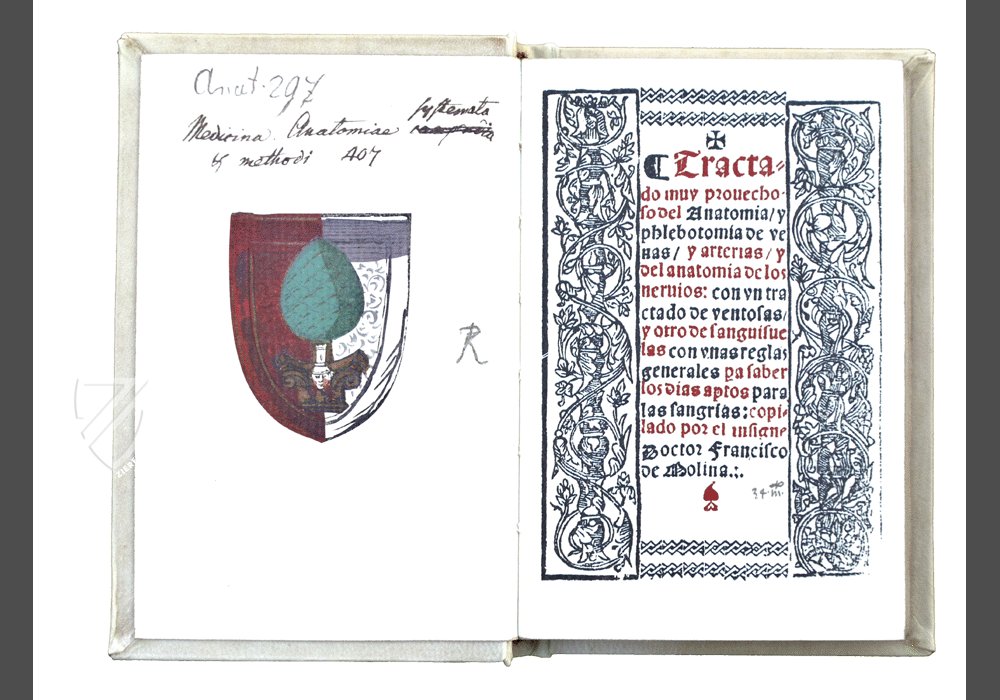 Anat. 297
systemata
Medicina. Anatomiae
& methodi A07
R
¶ Tracta-
do muy prouecho-
so del Anatomia/ y
phlebotomia de ve
nas/ y arterias/ y
del anatomia de los
neruios: con vn tra
ctado de ventosas/
y otro de sanguisue
las con vnas reglas
generales pa saber
los dias aptos para
las sangrias: copi-
lado por el insigne
Doctor Francisco
de Molina.:.
34